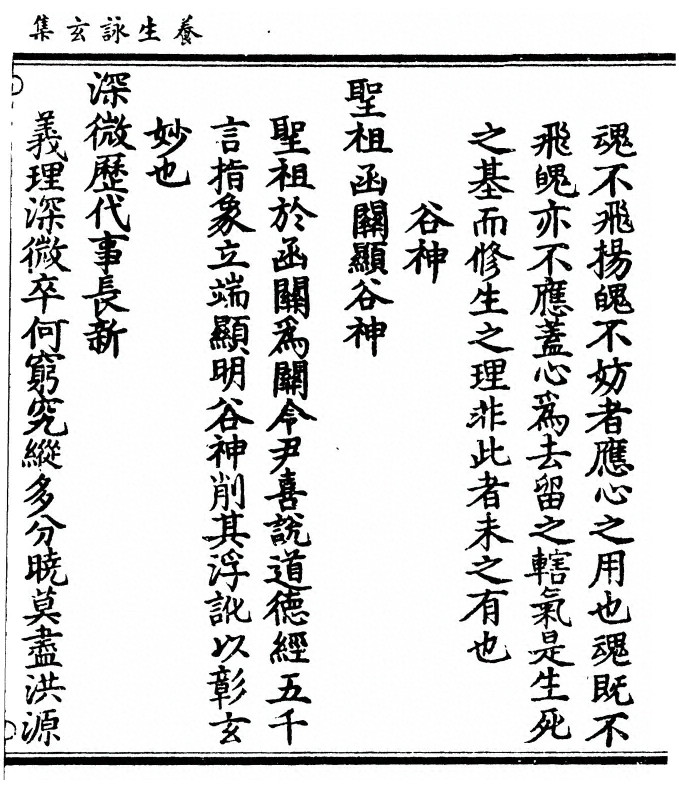 養生詠玄集
魂不飛揚魄不妨者應心之用也魂既不
飛魄亦不應蓋心爲去留之轄氣是生死
之基而修生之理非此者未之有也
谷神
聖祖函關顯谷神
聖祖於函關爲關令尹喜說道德經五千
言指象立端顯明谷神削其浮訛以彰玄
妙也
深微歷代事長新
義理深微卒何窮究縱多分曉莫盡洪源